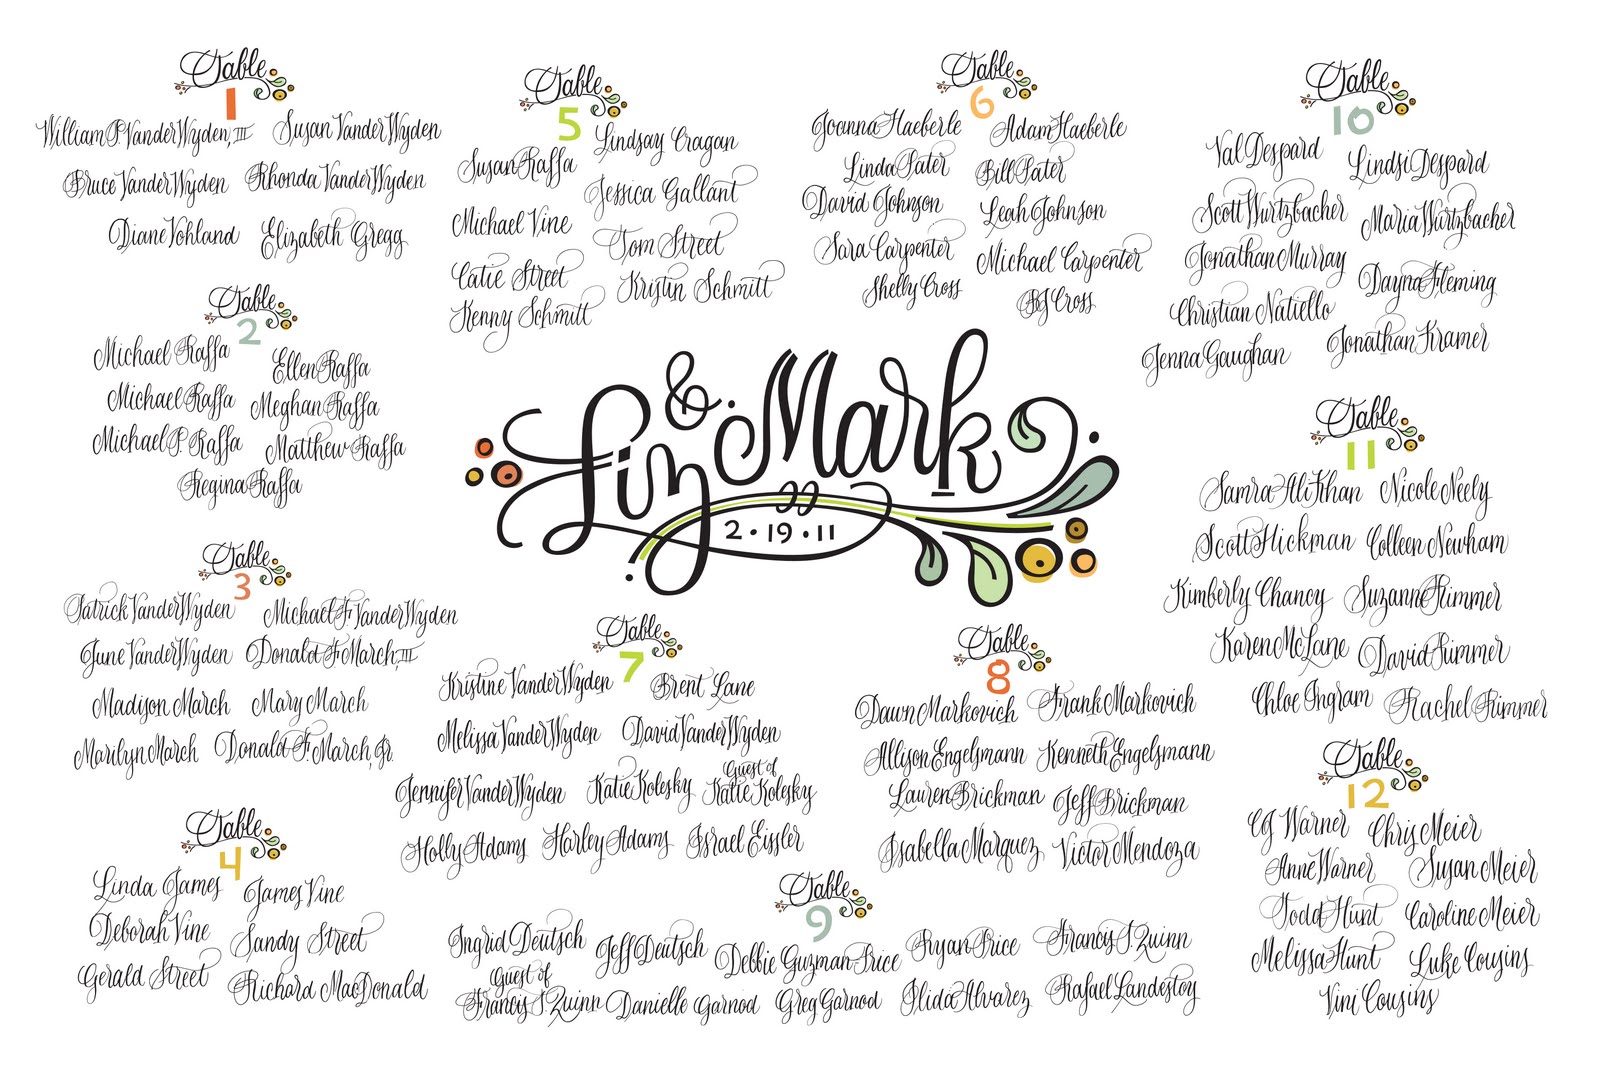 Table
1
William P. VanderWyden, III Susan VanderWyden
Bruce VanderWyden Rhonda VanderWyden
Diane Vohland Elizabeth Gregg
Table
2
Michael Raffa Ellen Raffa
Michael Raffa Meghan Raffa
Michael P. Raffa Matthew Raffa
Regina Raffa
Table
3
Patrick VanderWyden Michael F. VanderWyden
June VanderWyden Donald F. March, III
Madison March Mary March
Marilyn March Donald F. March, Jr.
Table
4
Linda James James Vine
Deborah Vine Sandy Street
Gerald Street Richard MacDonald
Table
5
Susan Raffa Lindsay Cragan
Michael Vine Jessica Gallant
Catie Street Tom Street
Kenny Schmitt Kristin Schmitt
Table
6
Joanna Haeberle Adam Haeberle
Linda Pater Bill Pater
David Johnson Leah Johnson
Sara Carpenter Michael Carpenter
Shelly Cross BJ Cross
Liz & Mark
2 • 19 • 11
Table
7
Kristine VanderWyden Brent Lane
Melissa VanderWyden David VanderWyden
Jennifer VanderWyden Katie Kolesky Guest of Katie Kolesky
Holly Adams Harley Adams Israel Eissler
Table
8
Dawn Markovich Frank Markovich
Allison Engelsmann Kenneth Engelsmann
Lauren Brickman Jeff Brickman
Isabella Marquez Victor Mendoza
Table
9
Ingrid Deutsch Jeff Deutsch Debbie Guzman-Price Ryan Price Francis J. Quinn
Guest of Francis J. Quinn Danielle Garnod Greg Garnod Ilida Alvarez Rafael Landestoy
Table
10
Val Despard Lindsi Despard
Scott Wurtzbacher Maria Wurtzbacher
Jonathan Murray Dayna Fleming
Christian Natiello Jonathan Kramer
Jenna Gaughan
Table
11
Samra Ali Khan Nicole Neely
Scott Hickman Colleen Newham
Kimberly Chancy Suzanne Rimmer
Karen McLane David Rimmer
Chloe Ingram Rachel Rimmer
Table
12
CJ Warner Chris Meier
Anne Warner Susan Meier
Todd Hunt Caroline Meier
Melissa Hunt Luke Cousins
Vini Cousins